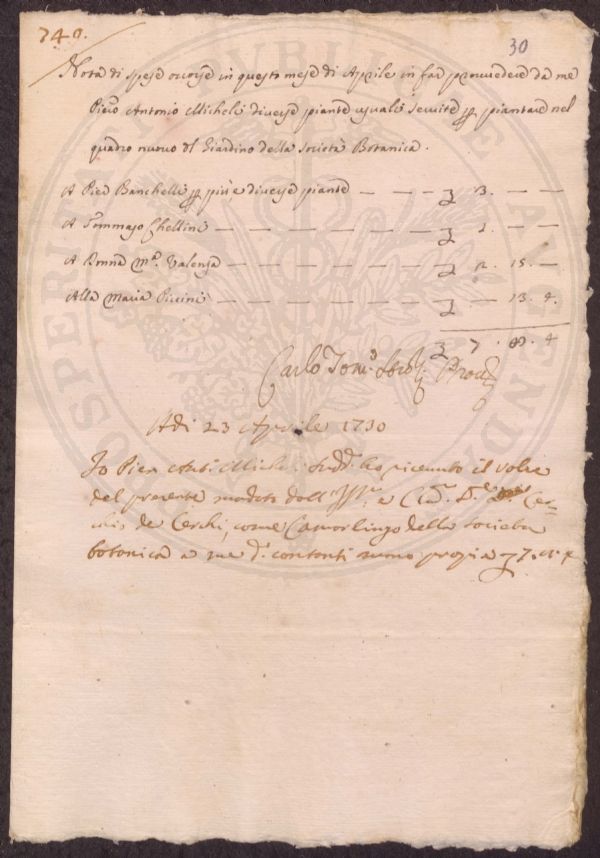 740.
30
Nota di spese occorse in questo mese di Aprile in far provvedere da me
Piero Antonio Micheli diverse piante quali servite p piantare nel
quadro nuovo del Giardino della Società Botanica.
A Piero Banchelli p più, e diverse piante — — — 3. — —
A Tommaso Ghellini — — — 1. — —
A Monna Mª. Valenza — — — 2. 15. —
Alla Maria Piccini — — — — 13. 4.
7. 8. 4
Carlo Tom°
Adi 23 Aprile 1730
Io Pier Anto Micheli sudd. ho ricevuto il valore
del presente mandato dall Ill e Cer=
chio de Cerchi, come Camarlingo della Società
botanica a me d. contanti mano propria 7.
PROSPERITATI PVBLICAE AVGENDAE